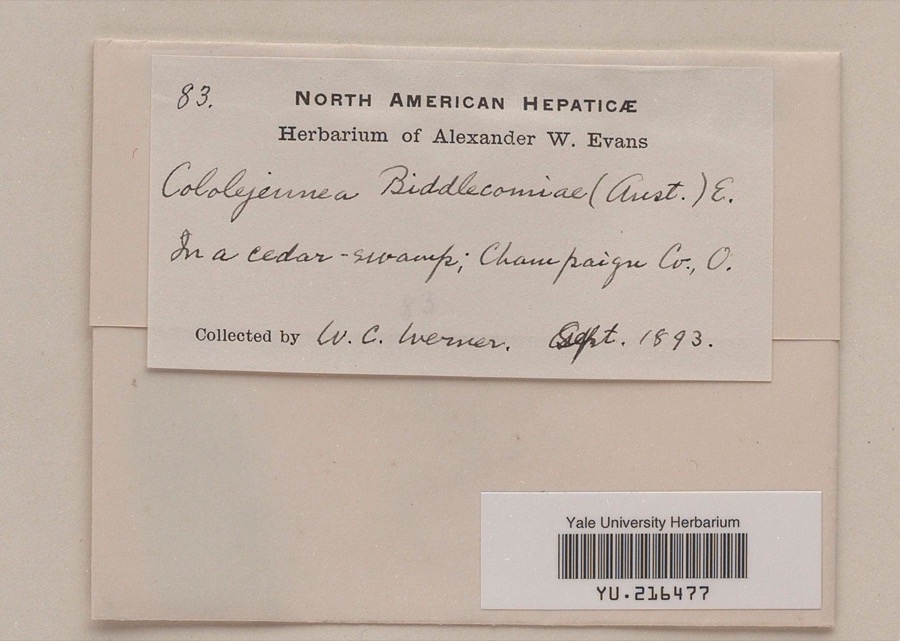 83.
NORTH AMERICAN HEPATICÆ
Herbarium of Alexander W. Evans
Cololejeunea Biddlecomiae (Aust.) E.
In a cedar-swamp; Champaign Co., O.
83
Collected by W. C. Werner. Sept. 1893.
Yale University Herbarium
YU.216477